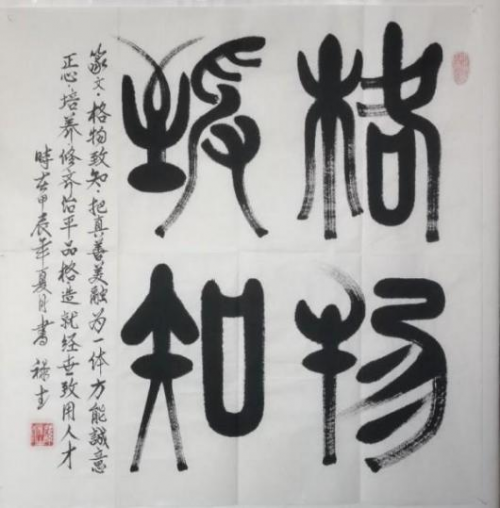 格物
致知
篆文·格物致知·把真善美融为一体方能誠意
正心·培养修齐治平品格造就经世致用人才
時在甲辰年夏月書 禄